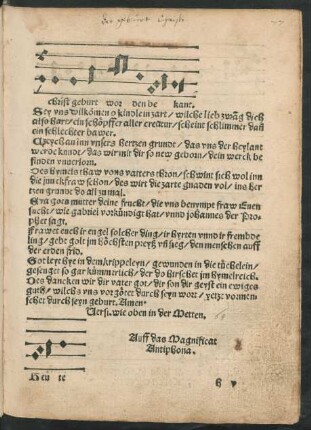 der geburt Christi
christ geburt wor den be kant.
Sey vns wilkömen o kindlein zart/ wilche lieb zwäg dich
also hart/ ein schöpffer aller creatur/ scheint schlimmer dañ
ein schlechter bawer.
Weych an inn vnsers hertzen grundt/ das vns der heylant
werde kundt/ das wir mit dir so new geborn/ dein werck be
finden vnuerlorn.
Des hymels thaw vons vatters thron/ schwint sich wol inn
die junckfraw schon/ des wirt die zarte gnaden vol/ ins her
tzen grundt do all zu mal.
Eya gots mutter deine frucht/ die vns benympt fraw Euen
sucht/ wie gabriel vorkündigt hat/ vnnd johannes der Pro
phet sagt.
Frawet euch ir engel solcher ding/ ir hyrten vnnd ir frembde
ling/ gebt golt im höchsten preyß vñ sieg/ den menschen auff
der erden frid.
Got leyt hye in dem krippelein/ gewunden in die tüchelein/
gesenget so gar kümmerlich/ der do hirschet im hymelreich.
Des dancken wir dir vater got/ dir son dir geyst ein ewiges
gut/ wilchs vns vorgötet durch seyn wort/ yetzt vormen-
schet durch seyn geburt. Amen.
Versi. wie oben in der Metten.
Auff das Magnificat
Antiphona.
Heu te
G v